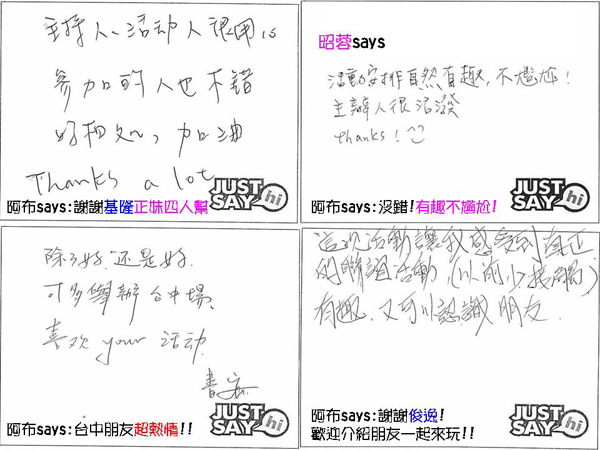 主持人、活动人很用心
参加的人也不錯
好相处，加油
Thanks a lot
JUST SAY hi
阿布says:謝謝基隆正妹四人幫
昭蓉says
活動安排自然有趣,不尷尬!
主辦人很活潑
thanks!
JUST SAY hi
阿布says:沒錯!有趣不尷尬!
除了好.還是好.
可多舉辦台中場、
喜欢 your 活动.
JUST SAY hi
阿布says:台中朋友超熱情!!
這次活動讓我感受到真正
的聯誼活動(以前少接觸)
有趣.又可以認識朋友.
JUST SAY hi
阿布says:謝謝俊逸!
歡迎介紹朋友一起來玩!!